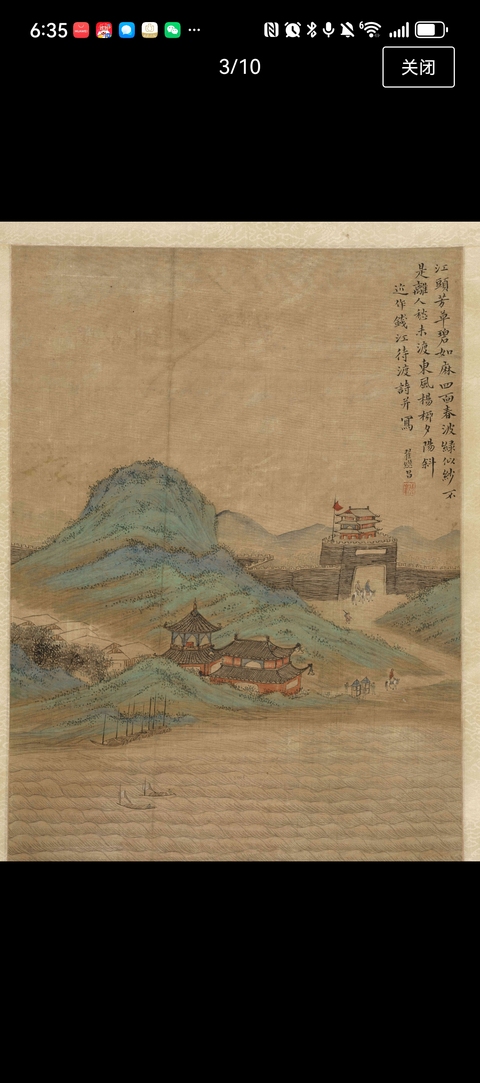 6:35
3/10
关闭
江頭芳草碧如麻四面春波綠似紗不
是離人愁未渡東風楊柳夕陽斜
近作錢江待渡詩并寫